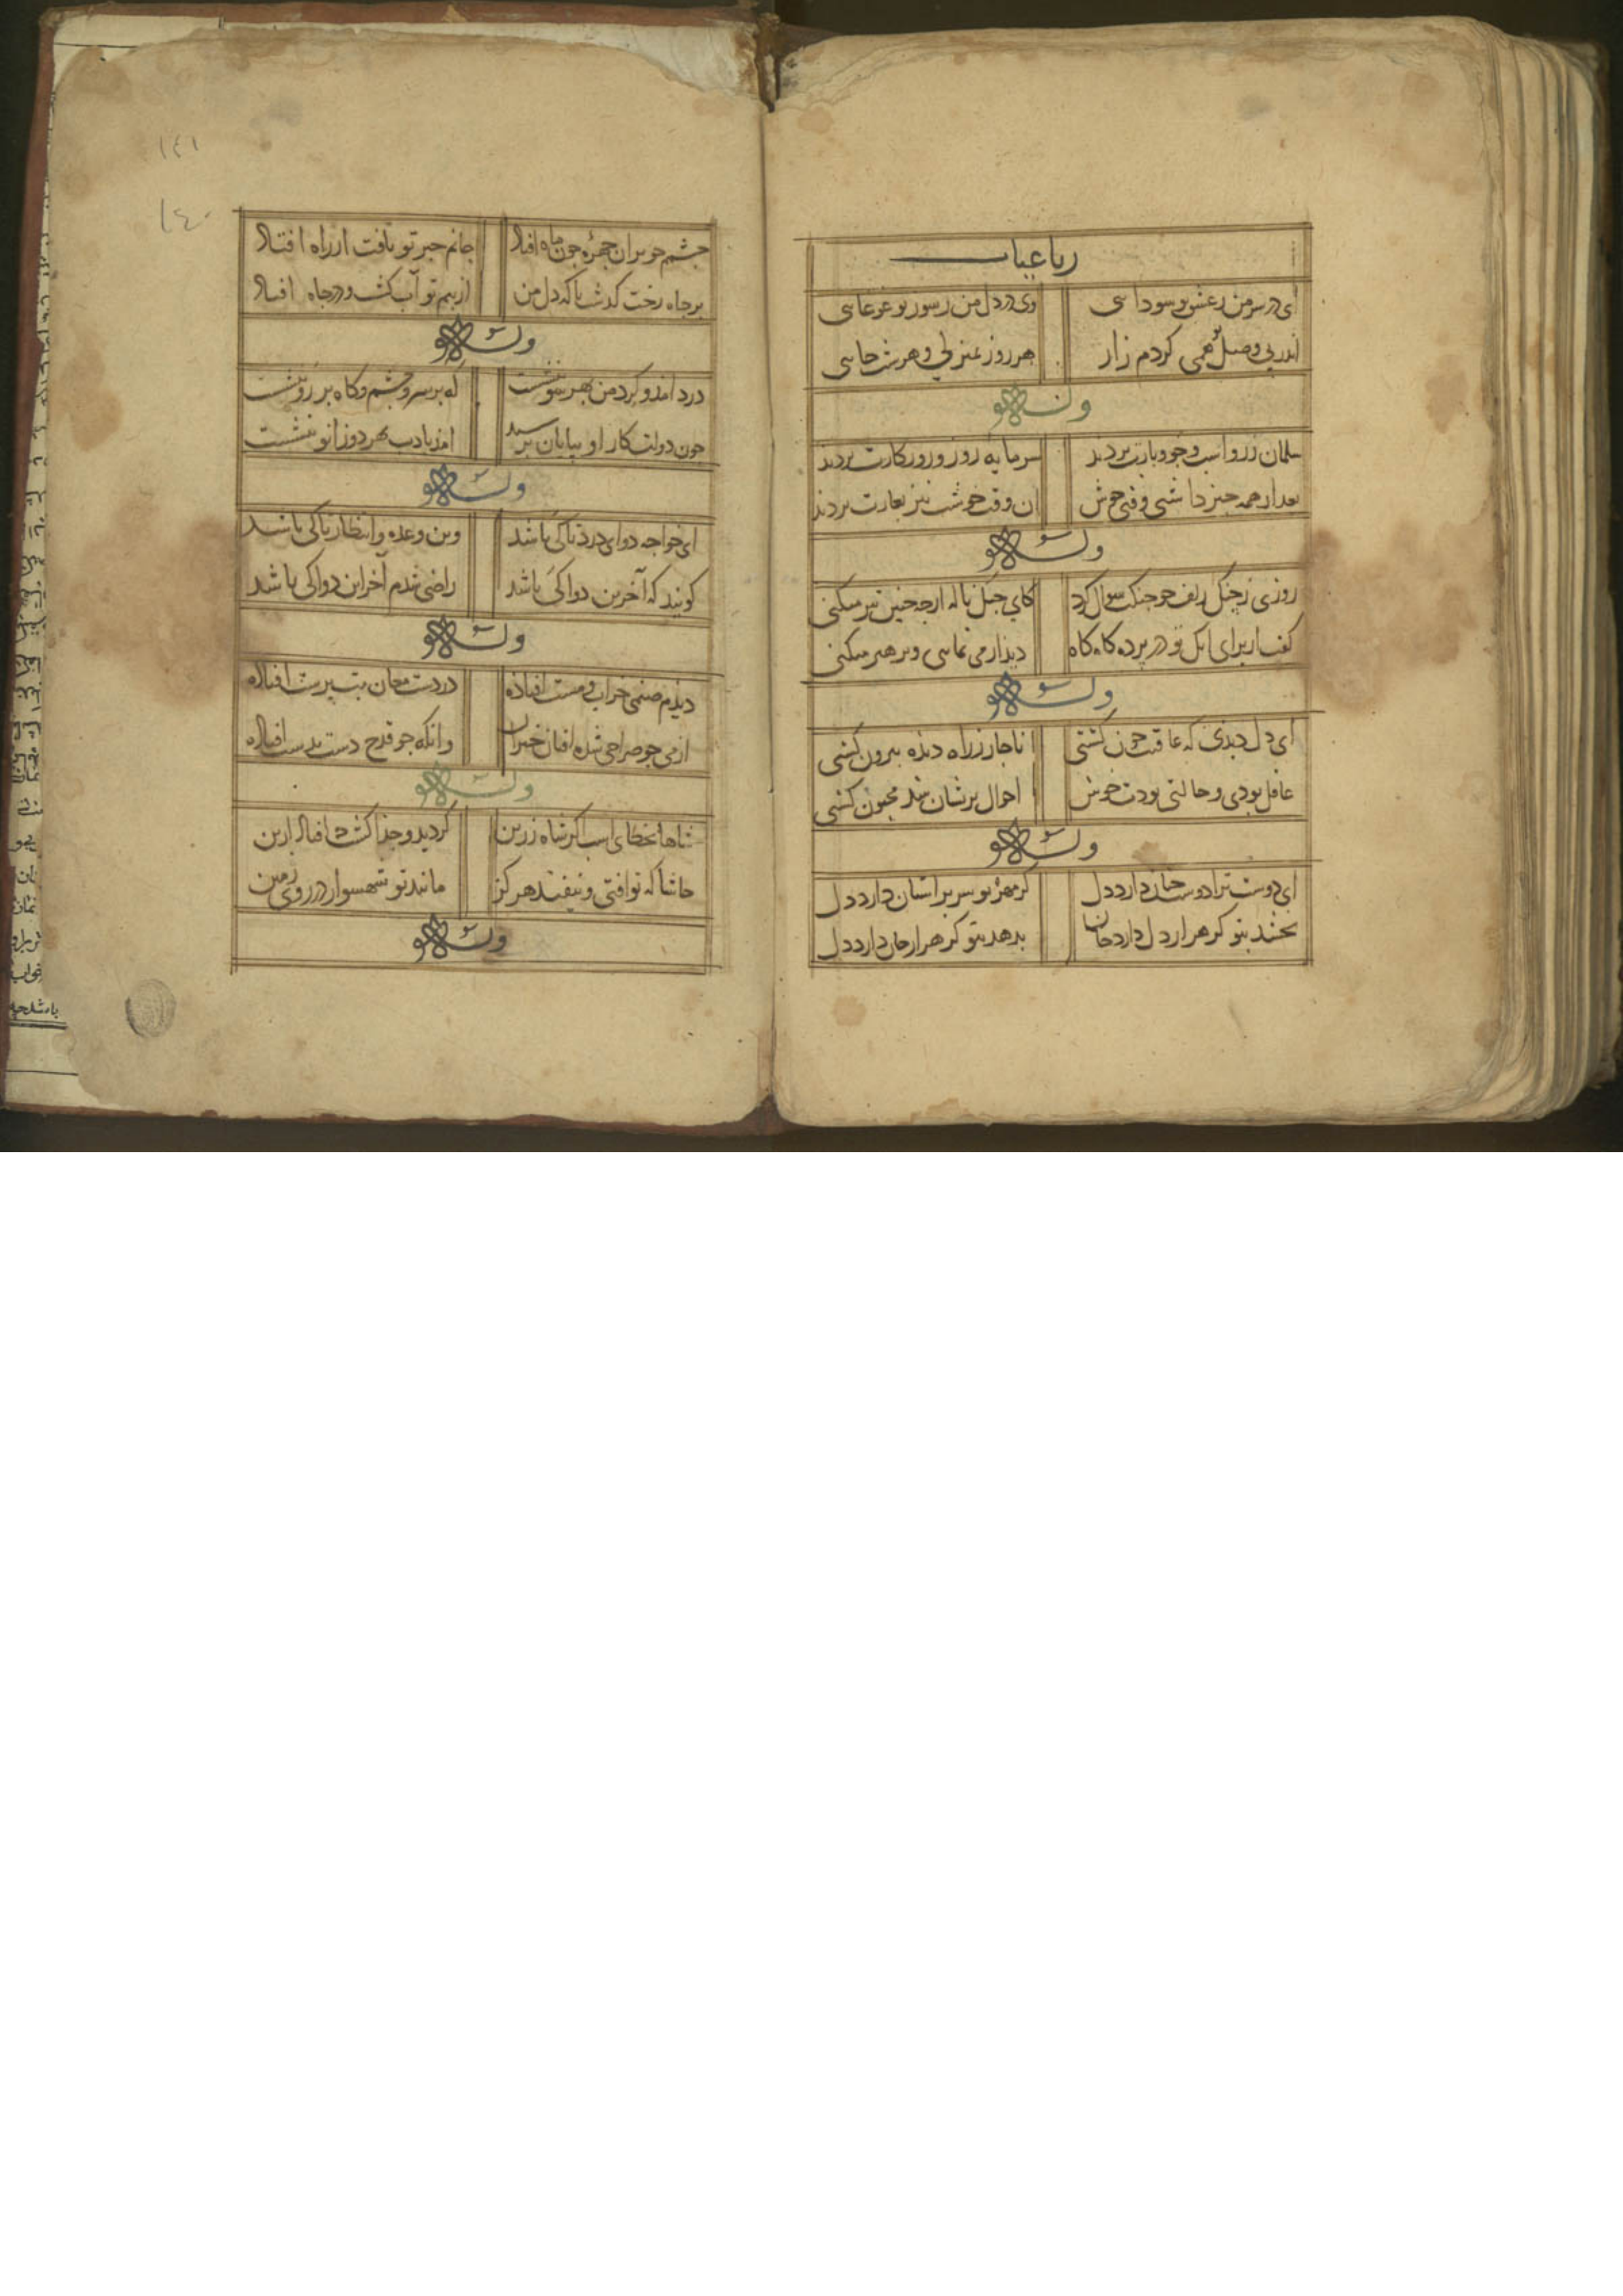 رباعیات
ای در سر من ز عشق تو سودائی وی در دل من ز سور تو غوغائی
اندر پی وصل تو همی کردم زار هر روز بمنزلی و هر شب جائی
وله
سلمان زر و اسب و جو و بارت بردند سرمایه روز و روزکارت بردند
بعد از همه چیز داشتی وقتی خوش آن وقت خوشت نیز بغارت بردند
وله
روزی ز چنکل زلف چو چنکت سوال کرد کای چنک ناله از چه چنین تیز میکنی
کفت از برای آنک تو در پرده کاه کاه دیدار می نمائی و پرهیز میکنی
وله
ای دل دیدی که عاقبت خون کشتی ناچار ز راه دیده بیرون کشتی
عاقل بودی و حالتی بودت خوش احوال پریشان شد مجنون کشتی
وله
ای دوست ترا دوست چنان دارد دل کز مهر تو سر بر آستان دارد دل
بخشد بتو کر هزار دل دارد جان بدهد بتو کر هزار جان دارد دل
چشمم چو بران چهره چون ماه افتاد جانم خبر تو یافت از راه افتاد
بر چاه زنخت کذشت ناکه دل من از بیم تو آب کشت و در چاه افتاد
وله
درد آمد و کرد من بهر سو بنشست که بر سر و چشم و کاه بر رو بنشست
چون دولت کار او بپایان برسید آمد بادب بهر دو زانو بنشست
وله
ای خواجه دوای درد تا کی باشد وین وعده و انتظار تا کی باشد
کویند که آخرین دوا کی باشد راضی شدم آخر این دوا کی باشد
وله
دیدم صنمی خراب و مست افتاده در دست مغان بت پرست افتاده
از می چو صراحی شده افتان خیزان وانکه چو قدح دست بدست افتاده
وله
شاها بخطای اسب اکر شاه زرین کردید و جدا کشت و افتاد ازین
حاشا که تو افتی و نیفتد هرکز مانند تو شهسوار در روی زمین
وله
۱٤۱
۱٤۰
بادشاه